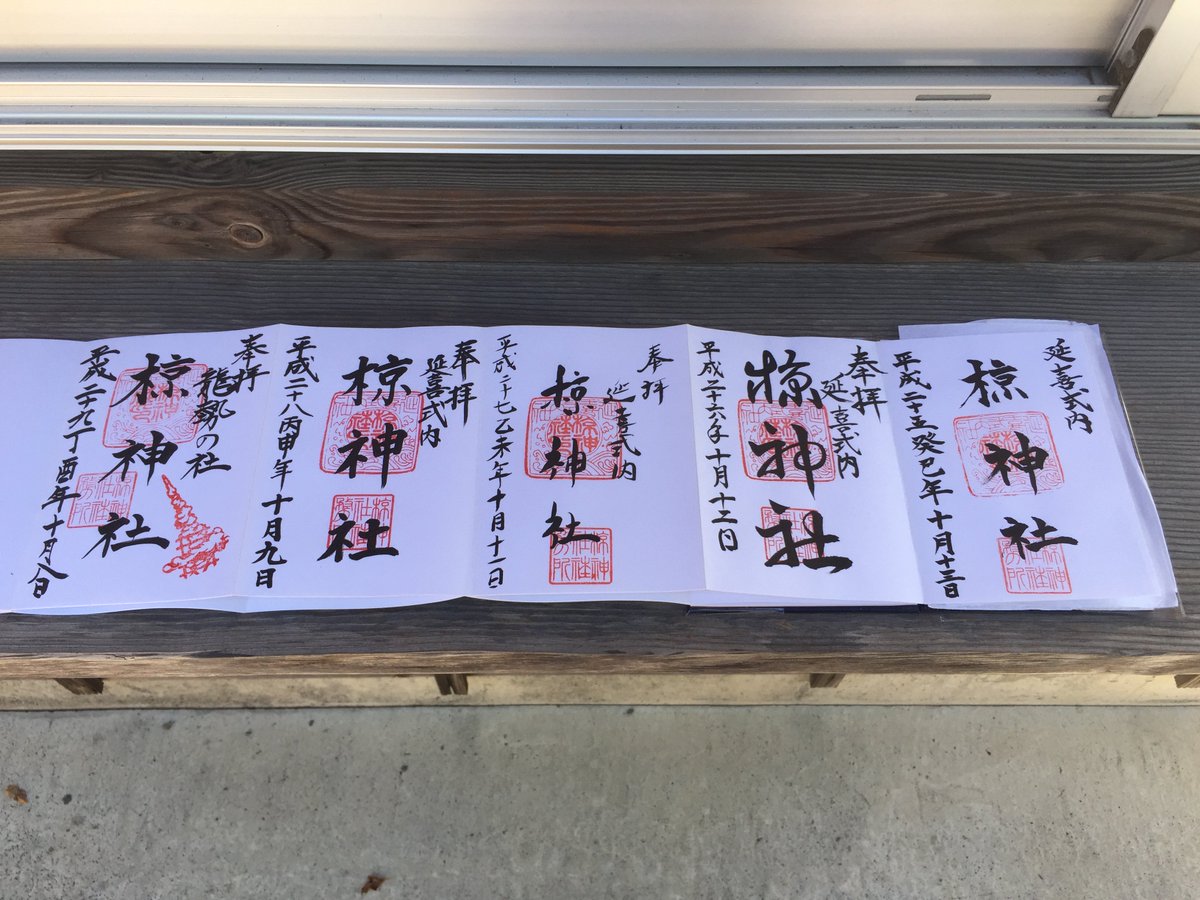 延喜式内
椋神社
平成二十五癸巳年十月十三日
奉拝
延喜式内
椋神社
平成二十六年十月十二日
奉拝
延喜式内
椋神社
平成二十七乙未年十月十一日
奉拝
延喜式内
椋神社
平成二十八丙申年十月九日
奉拝
龍勢の社
椋神社
平成二十九丁酉年十月八日